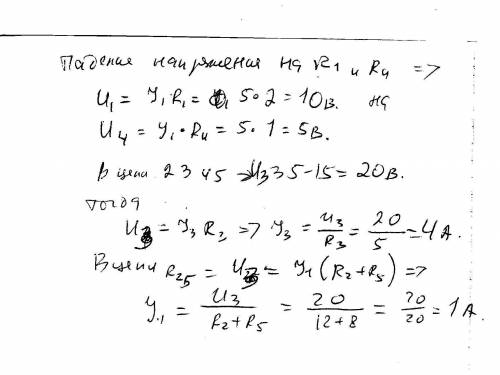 Падения напряжения на R1 и R4 =>
U1 = У1 R1 = 5·2 = 10в. на
U4 = У1·R4 = 5·1 = 5в.
В цепи 2345 U3 35-15 = 20В.
тогда
U3 = У3 R3 => У3 = U3/R3 = 20/5 = 4А.
В цепи R25 = U3 = У1 (R2+R5) =>
У1 = U3/(R2+R5) = 20/(12+8) = 20/20 = 1А.